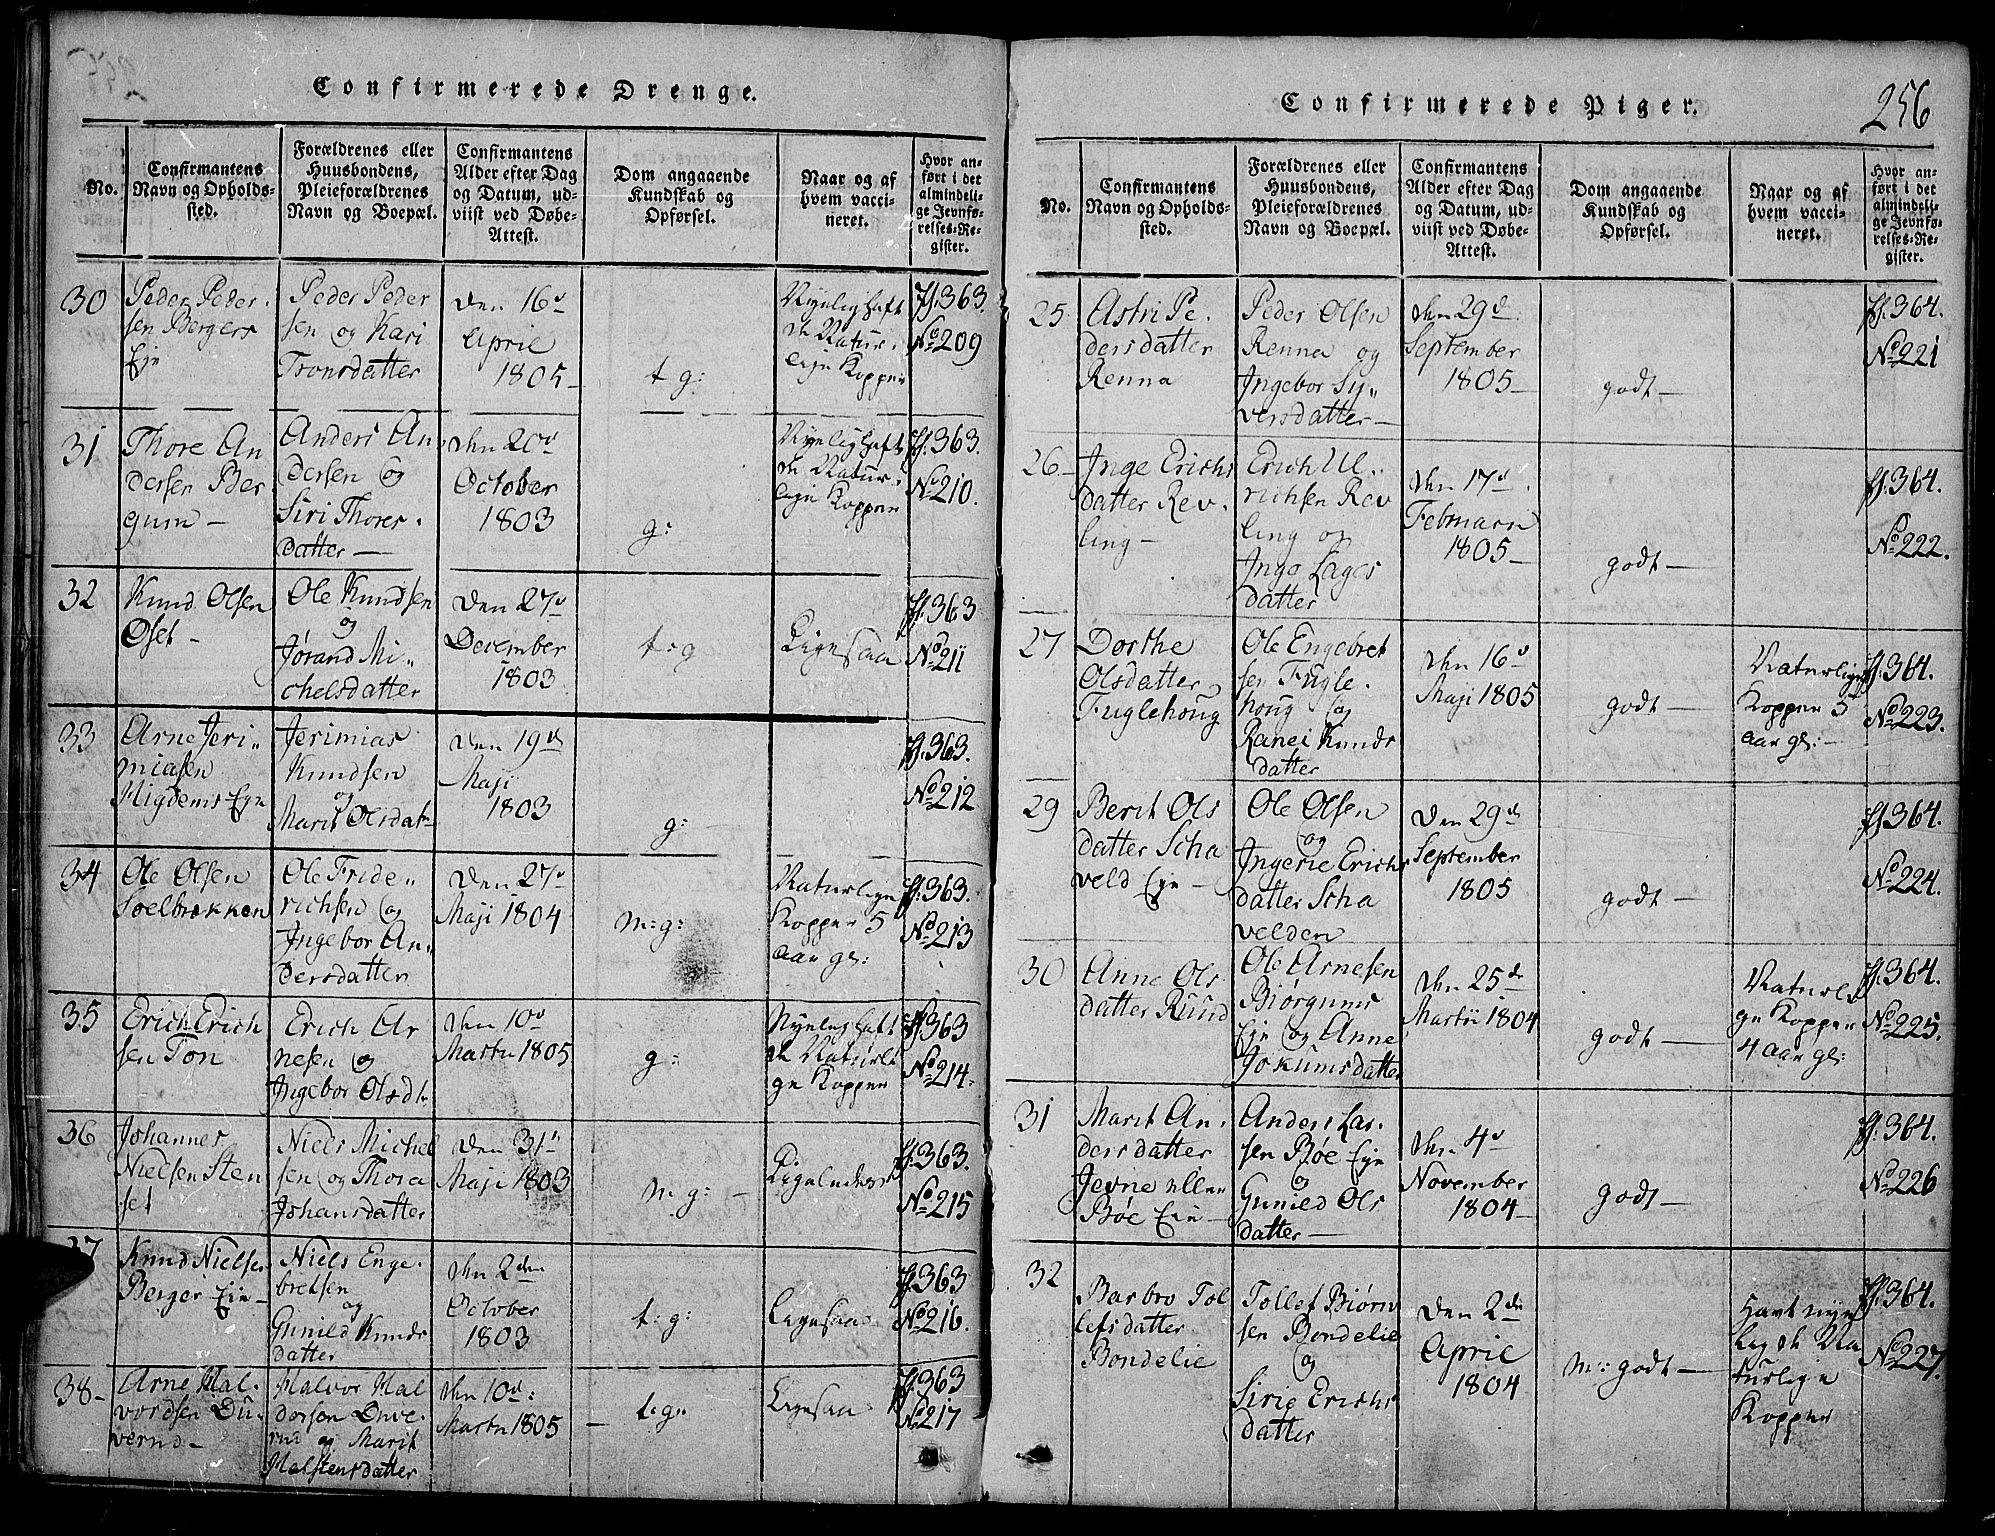 256
Confirmerede Drenge.
No.
Confirmantens
Navn og Opholds-
sted.
Forældrenes eller
Huusbondens,
Pleieforældrenes
Navn og Boepæl.
Confirmantens
Alder efter Dag
og Datum, ud-
viist ved Døbe-
Attest.
Dom angaaende
Kundskab og
Opførsel.
Naar og af
hvem vacci-
neret.
Hvor an-
ført i det
almindeli-
ge Jevnfø-
relses-Re-
gister.
30
Peder Peder-
sen Bergers
Eje
Peder Peder
sen og Kari
Tronsdatter
Den 16d
April
1805
t g:
Nyelig haft
de Natur-
lige Kopper
363.
No 209
31
Thore An
dersen Ber
gum
Anders An
dersen og
Siri Thores
datter
Den 20d
October
1803
g:
Nyelig haft
de Natur-
lige Kopper
363.
No 210.
32
Knud Olsen
Øset
Ole Knudsen
og
Jørand Mi-
chelsdatter
Den 27d
December
1803
t:g
Ligesaa
363
No 211
33
Arne Jeri-
miasen
Migdems Eje
Jerimias
Knudsen
og
Marit Olsdat
Den 19d
Maji
1803
g:
363.
No 212
34
Ole Olsen
Soelbrekken
Ole Fride-
richsen og
Ingebor An-
dersdatter
Den 27d
Maji 1804
m:g:
Naturlige
Kopper 5
aar gl:
363.
No 213
35
Erich Erich
sen Ton
Erich Ar
nesen og
Ingebor Olsdt
Den 10d
Marti 1805
g:
Nyelig haft
de Naturli
ge Kopper
363
No 214.
36
Johannes
Nielsen Sten
set
Niels Michel
sen og Thora
Johansdatter
Den 31
Maji 1803
m:g:
363.
No 215
37
Knud Nielsen
Berger Eie
Niels Enge-
bretsen
og
Gunild Knuds
datter
Den 2den
October
1803
t:g:
Ligesaa
363
No 216.
38
Arne Hal-
vordsen Du-
verud
Halvor Hal
dorson Duve-
rud og Marit
Halstensdatter
Den 10d:
Marti 1805
t:g:
Ligesaa
363
No 217
Confirmerede Piger.
No.
Confirmantens
Navn og Opholds-
sted.
Forældrenes eller
Huusbondens,
Pleieforældrenes
Navn og Boepæl.
Confirmantens
Alder efter Dag
og Datum, ud-
viist ved Døbe-
Attest.
Dom angaaende
Kundskab og
Opførsel.
Naar og af
hvem vacci-
neret.
Hvor an-
ført i det
almindeli-
ge Jevnfø-
relses-Re-
gister.
25
Astri Pe-
dersdatter
Renna
Peder Olsen
Renna og
Ingebor Sy-
versdatter
Den 29d
September
1805
godt
364.
No 221
26
Inge Erichs
datter Rev-
ling
Erich Ul-
richsen Rev
ling og
Inge Lages
datter
Den 17d
Februari
1805
godt
364.
No 222.
27
Dorthe
Olsdatter
Fuglehoug
Ole Engebret
sen Fugle-
houg og
Ranei Knuds
datter
Den 16d
Maji 1805
godt
Naturlige
Kopper 5
aar gl:
364.
No 223.
29
Berit Ols
datter Scha
veld Eje
Ole Olsen
og
Ingerie Erichs
datter Scha
velden
Den 29d
September
1805
godt
364.
No 224.
30
Anne Ols
datter Rund
Ole Arnesen
Biørgums
Eje og Anne
Jokumsdatter
Den 25d
Martii 1804
godt
Naturli
ge Kopper
4 aar gl:
364.
No 225.
31
Marit An-
dersdatter
Jevne eller
Bøe Eie
Anders Lar-
sen Bøe Eje
og
Gunild Ols
datter
Den 4d
November
1804
godt
364.
No 226
32
Barbro Tol
lefsdatter
Bondelie
Tollef Biørn
sen Bondelie
og
Sirie Erichs
datter
Den 2den
April
1804
m: godt
Havt nye
lig de Na
turlige
Kopper
364.
No 227.